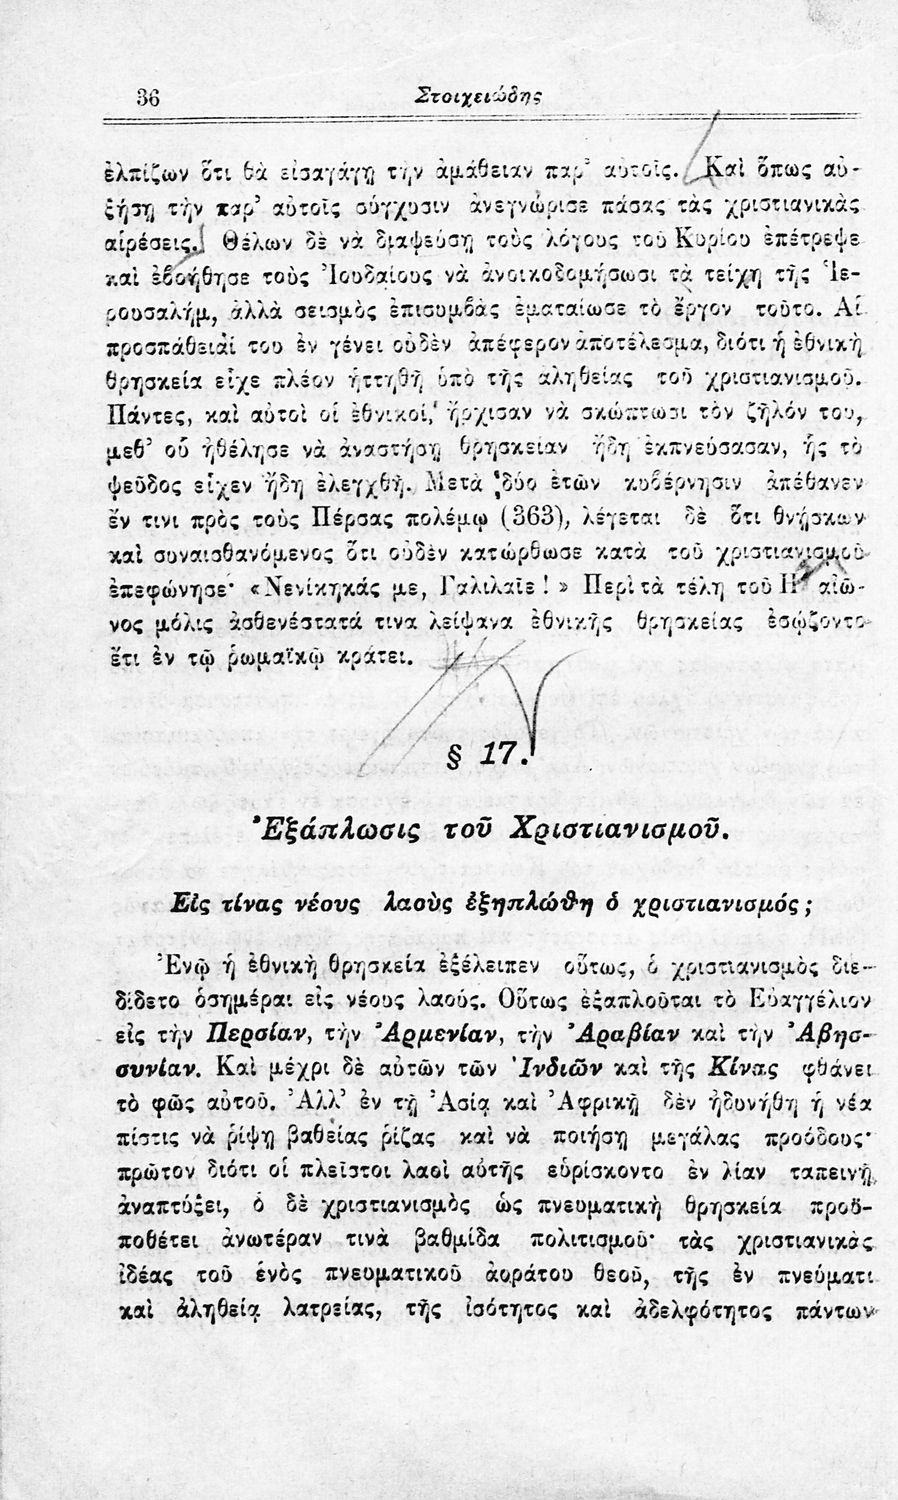 36
Στοιχειώδης
ἐλπίζων ὅτι θὰ εἰσαγάγῃ τὴν ἀμάθειαν παρ' αὐτοῖς. Καὶ ὅπως αὐ-
ξήσῃ τὴν παρ' αὐτοῖς σύγχυσιν ἀνεγνώρισε πάσας τὰς χριστιανικὰς
αἱρέσεις. Θέλων δὲ νὰ διαψεύσῃ τοὺς λόγους τοῦ Κυρίου ἐπέτρεψε
καὶ ἐβοήθησε τοὺς Ἰουδαίους νὰ ἀνοικοδομήσωσι τὰ τείχη τῆς Ἱε-
ρουσαλήμ, ἀλλὰ σεισμὸς ἐπισυμβὰς ἐματαίωσε τὸ ἔργον τοῦτο. Αἱ
προσπάθειαί του ἐν γένει οὐδὲν ἀπέφερον ἀποτέλεσμα, διότι ἡ ἐθνικὴ
θρησκεία εἶχε πλέον ἡττηθῆ ὑπὸ τῆς ἀληθείας τοῦ χριστιανισμοῦ.
Πάντες, καὶ αὐτοὶ οἱ ἐθνικοί, ἤρχισαν νὰ σκώπτωσι τὸν ζῆλόν του,
μεθ' οὗ ἠθέλησε νὰ ἀναστήσῃ θρησκείαν ἤδη ἐκπνεύσασαν, ἧς τὸ
ψεῦδος εἶχεν ἤδη ἐλεγχθῆ. Μετὰ δύο ἐτῶν κυβέρνησιν ἀπέθανεν
ἔν τινι πρὸς τοὺς Πέρσας πολέμῳ (363), λέγεται δὲ ὅτι θνήσκων
καὶ συναισθανόμενος ὅτι οὐδὲν κατώρθωσε κατὰ τοῦ χριστιανισμοῦ
ἐπεφώνησε· «Νενίκηκάς με, Γαλιλαῖε!» Περὶ τὰ τέλη τοῦ αἰῶ-
νος μόλις ἀσθενέστατά τινα λείψανα ἐθνικῆς θρησκείας ἐσῴζοντο
ἔτι ἐν τῷ ῥωμαϊκῷ κράτει.
§ 17.
Ἐξάπλωσις τοῦ Χριστιανισμοῦ.
Εἰς τίνας νέους λαοὺς ἐξηπλώθη ὁ χριστιανισμός;
Ἐνῷ ἡ ἐθνικὴ θρησκεία ἐξέλειπεν οὕτως, ὁ χριστιανισμὸς διε-
δίδετο ὁσημέραι εἰς νέους λαούς. Οὕτως ἐξαπλοῦται τὸ Εὐαγγέλιον
εἰς τὴν Περσίαν, τὴν Ἀρμενίαν, τὴν Ἀραβίαν καὶ τὴν Ἀβησ-
συνίαν. Καὶ μέχρι δὲ αὐτῶν τῶν Ἰνδιῶν καὶ τῆς Κίνας φθάνει
τὸ φῶς αὐτοῦ. Ἀλλ' ἐν τῇ Ἀσίᾳ καὶ Ἀφρικῇ δὲν ἠδυνήθη ἡ νέα
πίστις νὰ ῥίψῃ βαθείας ῥίζας καὶ νὰ ποιήσῃ μεγάλας προόδους·
πρῶτον διότι οἱ πλεῖστοι λαοὶ αὐτῆς εὑρίσκοντο ἐν λίαν ταπεινῇ
ἀναπτύξει, ὁ δὲ χριστιανισμὸς ὡς πνευματικὴ θρησκεία προϋ-
ποθέτει ἀνωτέραν τινὰ βαθμίδα πολιτισμοῦ· τὰς χριστιανικὰς
ἰδέας τοῦ ἑνὸς πνευματικοῦ ἀοράτου θεοῦ, τῆς ἐν πνεύματι
καὶ ἀληθείᾳ λατρείας, τῆς ἰσότητος καὶ ἀδελφότητος πάντων